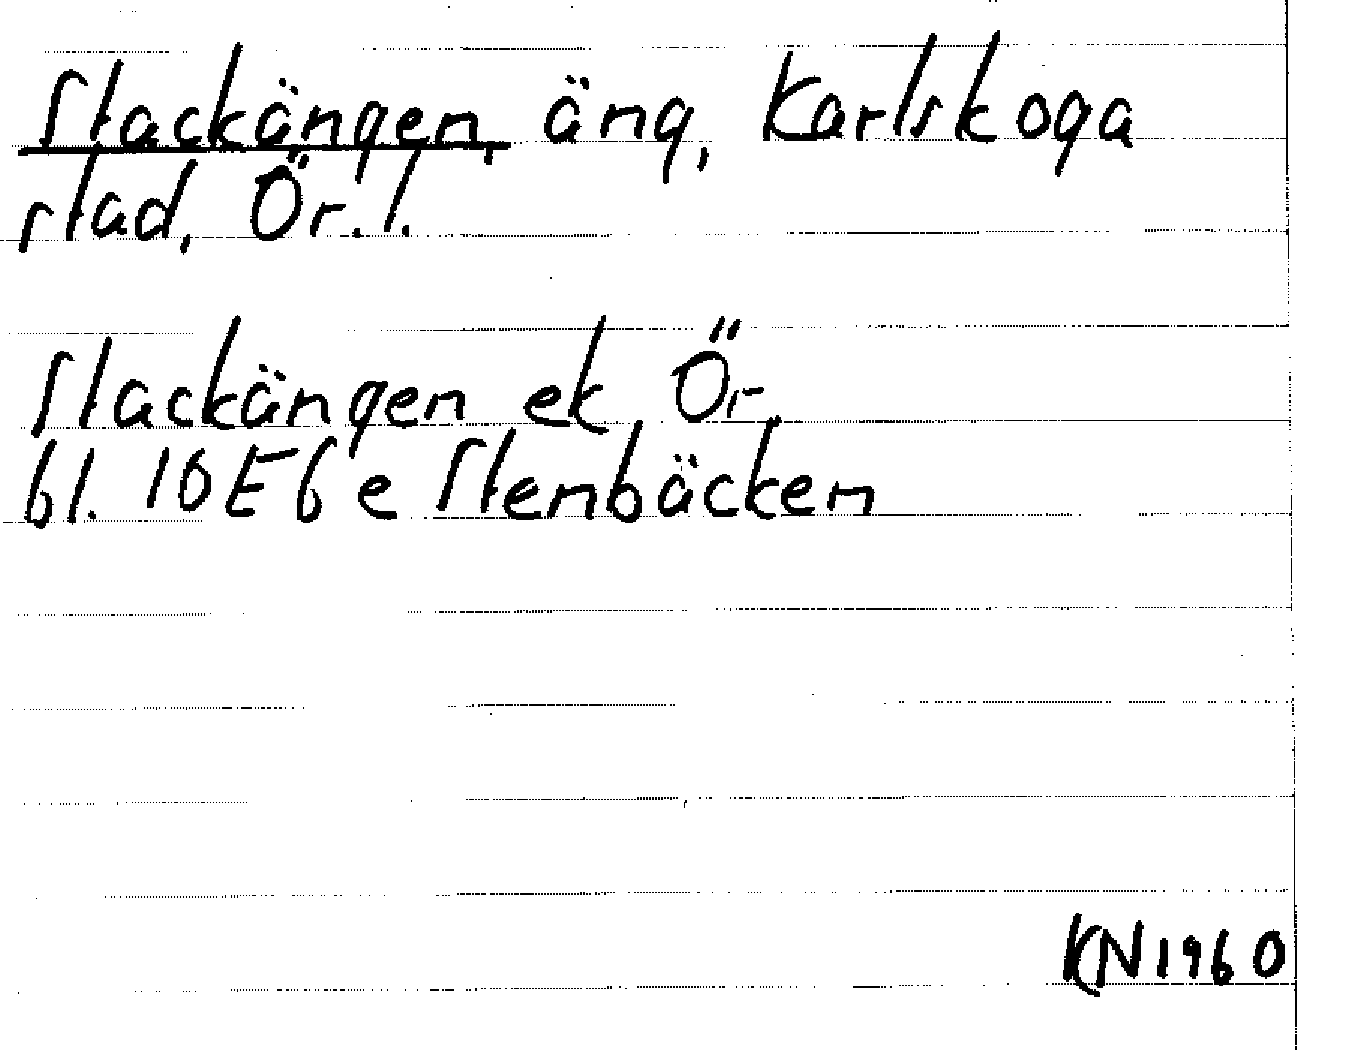 Stackängen, äng, Karlskoga
stad, Ör. l.
Stackängen ek Ör.
bl. 10E6e Stenbäcken
KN1960